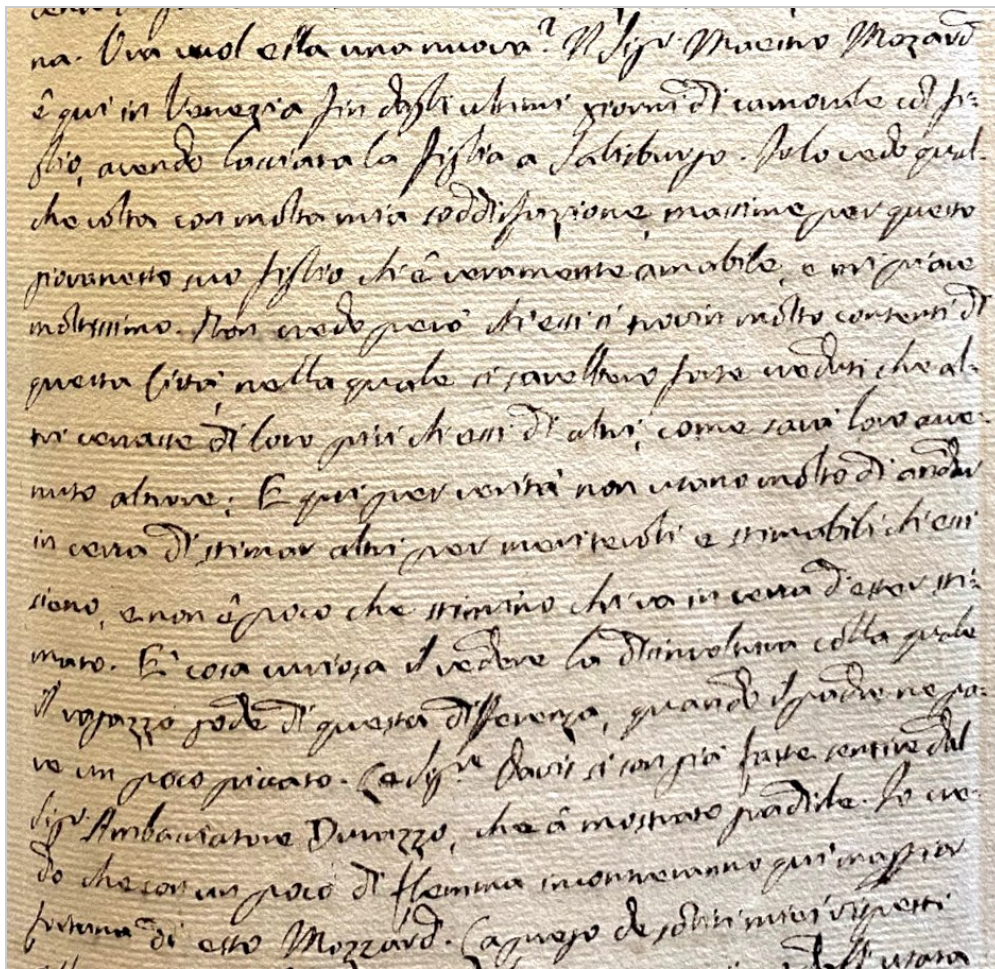 na. Ora vuol ella una nuova? Il Sigr. Maestro Mozard
ê qui in Venezia fin dagli ultimi giorni di carnovale col fi=
glio, avendo lasciata la figlia a Salisburgo. Io lo vedo qual-
che volta con molta mia soddisfazione, massime per questo
giovanetto suo figlio ch'ê veramente amabile, e mi piace
moltissimo. Non credo però ch'essi si trovin molto contenti di
questa Città, nella quale si sarebbero forse creduti che al-
tri cercasse di loro più ch'essi di altri, come sarà loro avve-
nuto altrove; E qui per verità non usano molto di andar
in cerca di stimar altri per meritevoli e stimabili ch'essi
sieno, e non ê poco che stimino chi va in cerca d'esser sti=
mato. E' cosa curiosa il vedere la disinvoltura colla quale
il ragazzo gode di questa differenza, quando il padre ne pa=
re un poco piccato. Le Sigre Davis si son già fatte sentire dal
Sigr. Ambasciatore Durazzo, che â mostrato gradirle. Io cre-
do che con un poco di flemma incontreranno qui maggior
fortuna di esso Mozzard. La prego de soliti miei rispetti